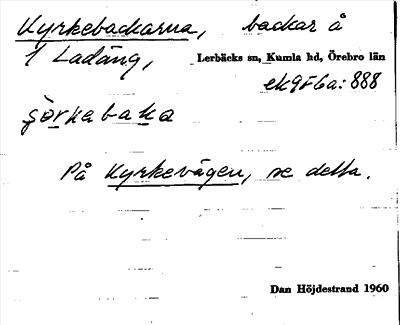 Kyrkebackarna, backar å
1 Ladäng,
Lerbäcks sn, Kumla hd, Örebro län
ek 9f6a: 888
çörkabaka
På Kyrkevägen, se detta.
Dan Höjdestrand 1960